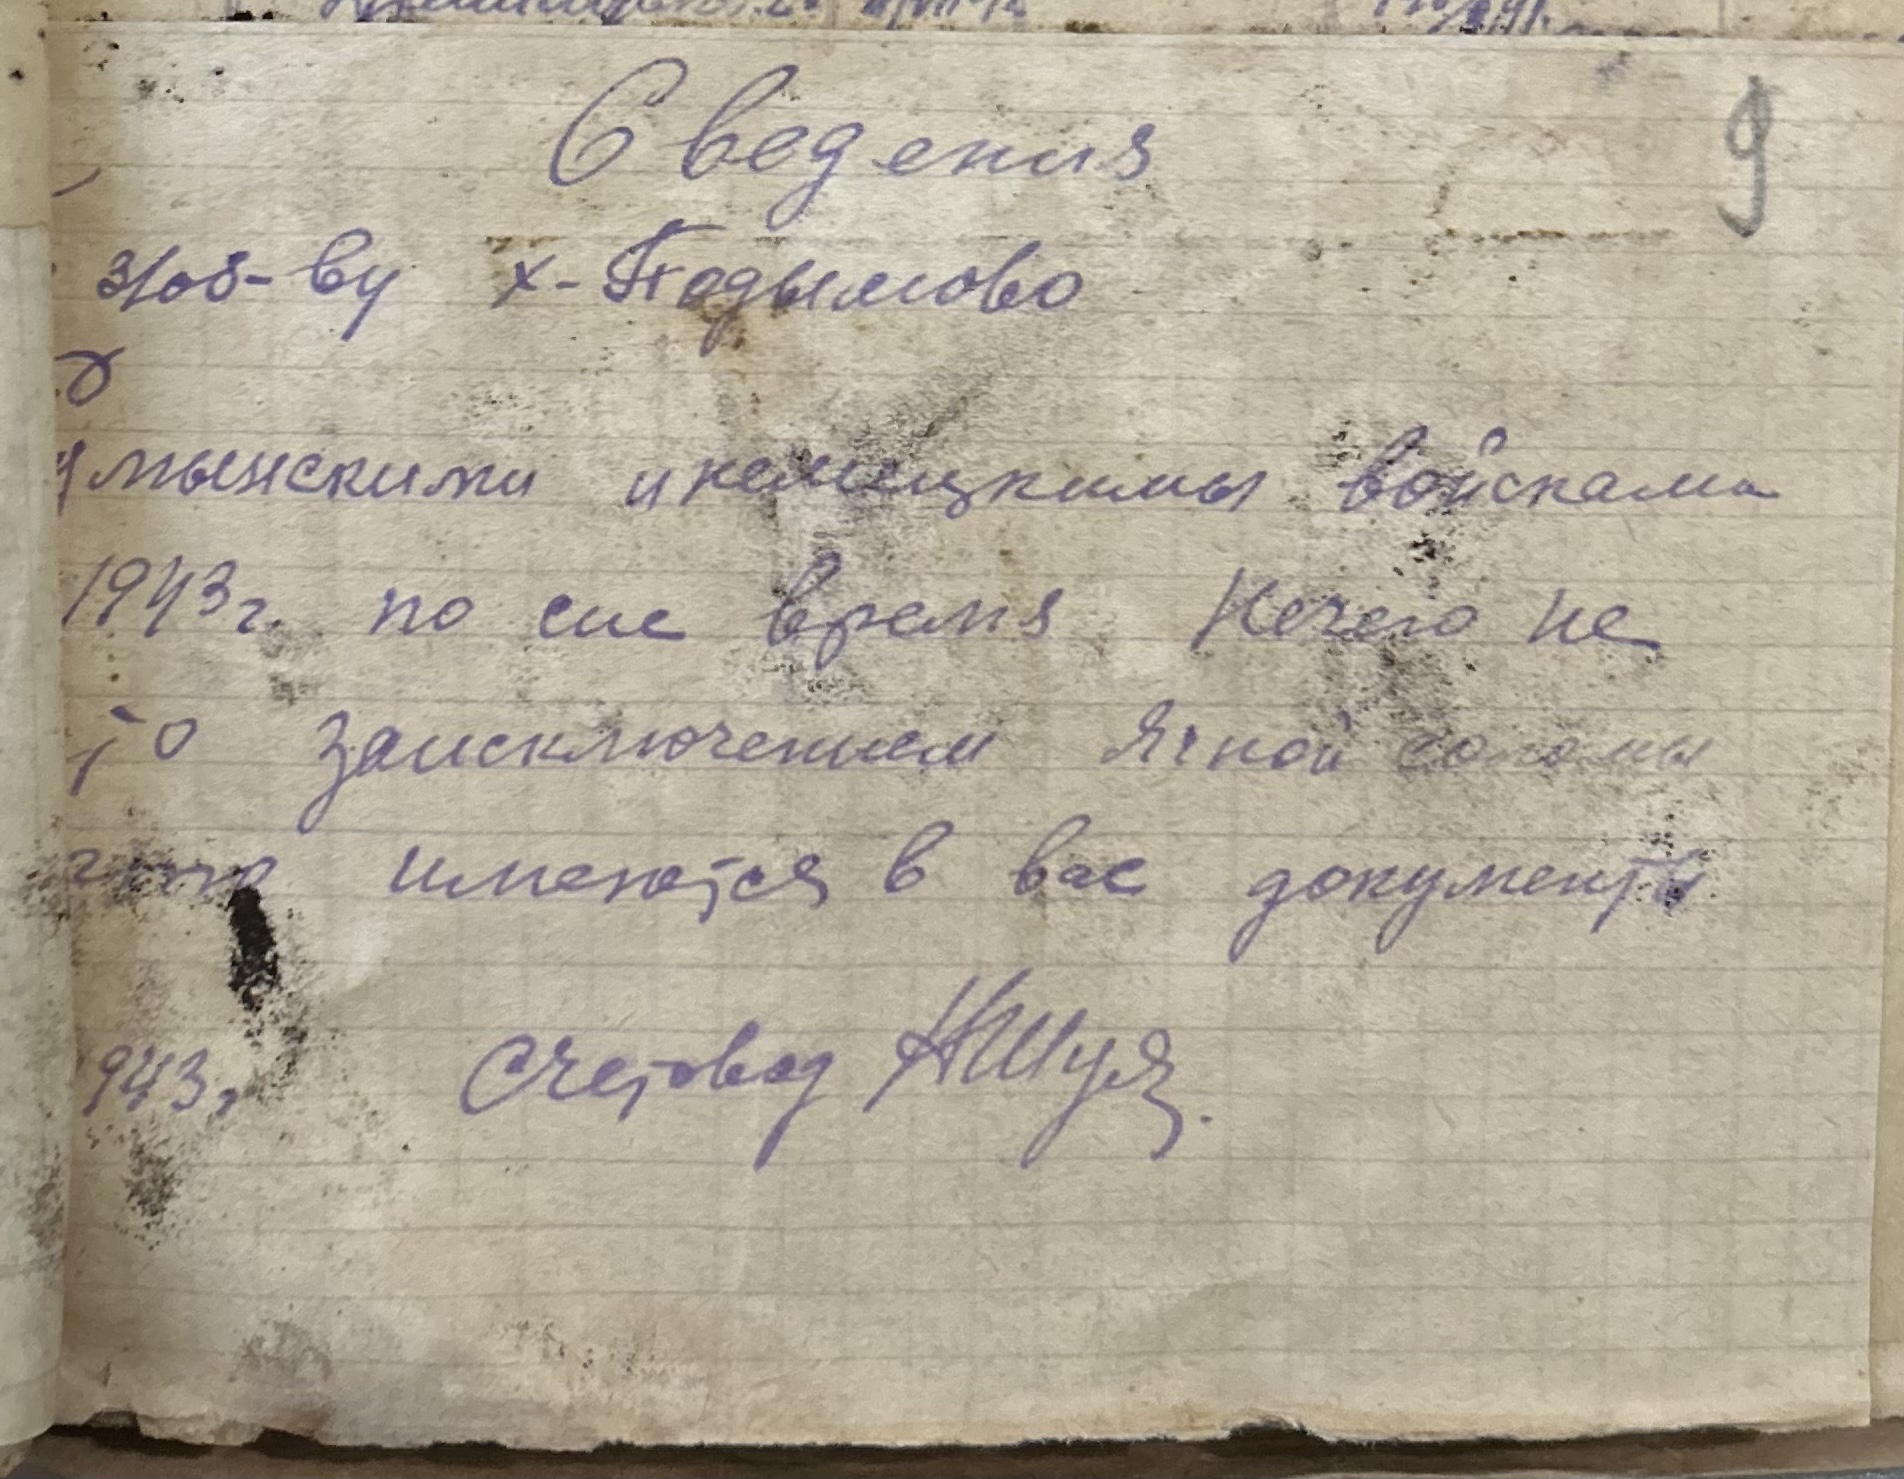 Сведения
9
х-Подымово
мынскими и немецкимы войсками
1943г. по сие время Нечего не
то заисключением Ячной соломы
имеются в вас документы
943г счетовод